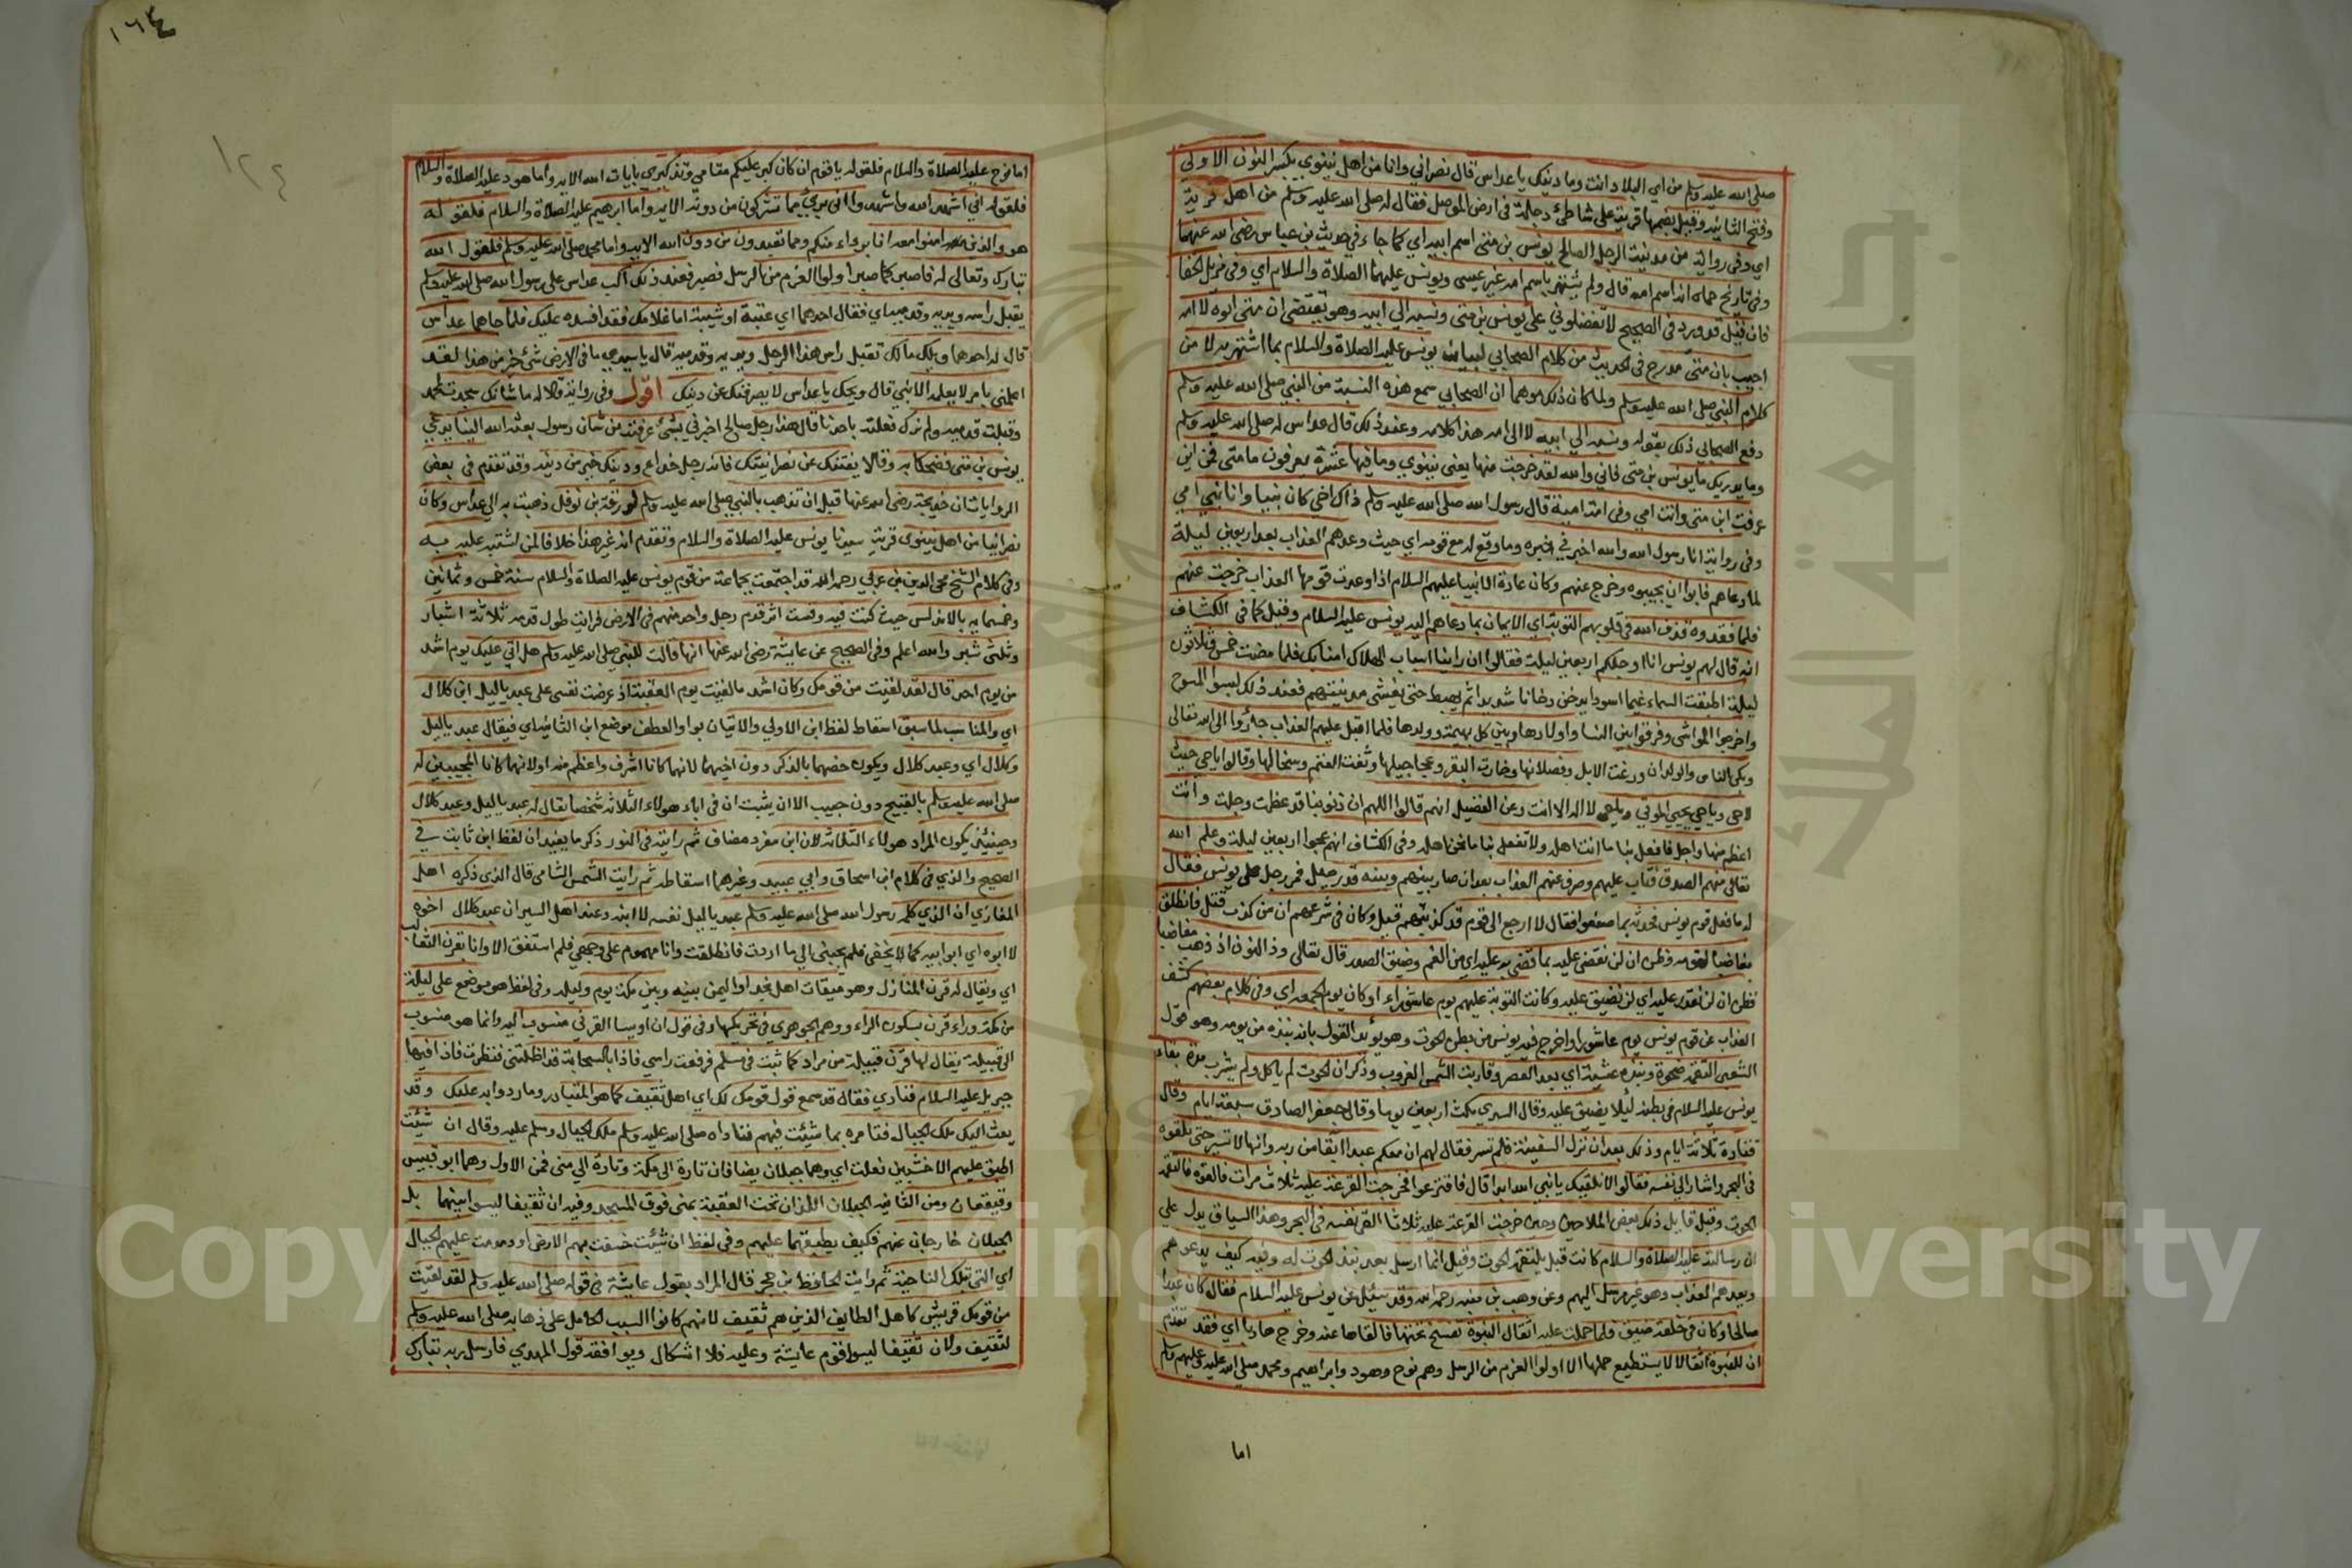 صلى الله عليه وسلم من اي البلاد انت وما دينك يا عداس قال نصراني وانا من اهل نينوي بكسر النون الاولى
وفتح الثانية وقيل بضمها قرية على شاطئ دجلة في ارض الموصل فقال له صلى الله عليه وسلم من اهل قرية
اي وفي رواية من مدينة الرجل الصالح يونس بن متى اسم ابيه اي كما جاء في حديث بن عباس رضي الله عنهما
وفي تاريخ حماه انه اسم امه قال ولم يشتهر باسم امه غير عيسى ويونس عليهما الصلاة والسلام اي وفي مزيل الخفا
فان قيل قد ورد في الصحيح لا تفضلوني على يونس بن متى ونسبه الي ابيه وهو يقتضي ان متى ابوه لا امه
اجيب بان متى مدرج في الحديث من كلام الصحابي لبيان يونس عليه الصلاة والسلام بما اشتهر به لا من
كلام النبي صلى الله عليه وسلم ولما كان ذلك موهما ان الصحابي سمع هذه النسبة من النبي صلى الله عليه وسلم
دفع الصحابي ذلك بقوله ونسبه الي ابيه لا الى امه هذا كلامه وعند ذلك قال عداس له صلى الله عليه وسلم
وما يدريك ما يونس بن متى فاني والله لقد خرجت منها يعني نينوي وما فيها عشرة يعرفون ما متى فمن اين
عرفت ابن متى وانت امي وفي امة امية قال رسول الله صلى الله عليه وسلم ذاك اخي كان نبيا وانا نبي امي
وفي رواية انا رسول الله والله اخبرني خبره وما وقع له مع قومه اي حيث وعدهم العذاب بعد اربعين ليلة
لما دعاهم فابوا ان يجيبوه وخرج عنهم وكان عادة الانبيا عليهم السلام اذا وعدت قومها العذاب خرجت عنهم
فلما فقدوه قذف الله في قلوبهم التوبة اي الايمان بما دعاهم اليه يونس عليه السلام وقيل كما في الكشاف
انه قال لهم يونس انا اوجلكم اربعين ليلة فقالوا ان راينا اسباب الهلاك امنا بك فلما مضت خمس وثلاثون
ليلة اطبقت السماء غيما اسود يدخن دخانا شديدا ثم يهبط حتى يغشى مدينتهم فعند ذلك لبسوا المسوح
واخرجوا المواشي وفرقوا بين النسا واولادها وبين كل بهيمة وولدها فلما اقبل عليهم العذاب جأروا الى الله تعالى
وبكى الناس والولدان ورغت الابل وفصلانها وخارت البقر وعجاجيلها وثغت الغنم وسخالها وقالوا يا حي حيث
لا حي ويا حي يحيي الموتي ويا حي لا اله الا انت وعن الفضيل انهم قالوا اللهم ان ذنوبنا قد عظمت وجلت وانت
اعظم منها واجل فافعل بنا ما انت اهله ولا تفعل بنا ما نحن اهله وفي الكشاف انهم عجوا اربعين ليلة وعلم الله
تعالى منهم الصدق فتاب عليهم وصرف عنهم العذاب بعد ان صار بينهم وبينه قدر ميل فمر رجل على يونس فقال
له ما فعل قوم يونس فحدثه بما صنعوا فقال لا ارجع الى قوم قد كذبتهم قيل وكان في شرعهم ان من كذب قتل فانطلق
مغاضبا لقومه وظن ان لن نقضي عليه بما قضى به عليه اي من الغم وضيق الصدر قال تعالى وذا النون اذ ذهب مغاضبا
فظن ان لن نقدر عليه اي لن نضيق عليه وكانت التوبة عليهم يوم عاشوراء او كان يوم الجمعة اي وفي كلام بعضهم كشف
العذاب عن قوم يونس يوم عاشورا واخرج فيه يونس من بطن الحوت وهو يؤيد القول بانه نبذه من يومه وهو قول
الشعبي التقمه ضحوة ونبذه عشية اي بعد العصر وقاربت الشمس الغروب وذكر ان الحوت لم ياكل ولم يشرب مدة بقاء
يونس عليه السلام في بطنه لئلا يضيق عليه وقال السدي مكث اربعين يوما وقال جعفر الصادق سبعة ايام وقال
قتادة ثلاثة ايام وذلك بعد ان نزل السفينة فلم تسر فقال لهم ان معكم عبدا آبقا من ربه وانها لا تسير حتى تلقوه
في البحر واشار الى نفسه فقالوا لا نلقيك يا نبي الله ابدا قال فاقترعوا فخرجت القرعة عليه ثلاث مرات فالقوه فالتقمه
الحوت وقيل قايل ذلك بعض الملاحين وحين خرجت القرعة عليه ثلاثا القى نفسه في البحر وهذا السياق يدل على
ان رسالته عليه الصلاة والسلام كانت قبل يلتقمه الحوت وقيل انما ارسل بعد نبذ الحوت له وفيه كيف يدعوهم
ويعدهم العذاب وهو غير مرسل اليهم وعن وهب بن منبه رحمه الله وقد سئل عن يونس عليه السلام فقال كان عبدا
صالحا وكان في خلقه ضيق فلما حملت عليه اثقال النبوة تفسخ تحتها فالقاها عنه وخرج هاربا اي فقد تقدم
ان للنبوة اثقالا لا يستطيع حملها الا اولوا العزم من الرسل وهم نوح وهود وابراهيم ومحمد صلى الله عليه وعليهم وسلم
اما
١٦٤
١٢٤
اما نوح عليه الصلاة والسلام فلقوله يا قوم ان كان كبر عليكم مقامي وتذكيري بايات الله الاية واما هود عليه الصلاة والسلام
فلقوله اني اشهد الله واشهدوا اني بريء مما تشركون من دونه الاية واما ابرهيم عليه الصلاة والسلام فلقوله
هو والذين امنوا معه انا برءاء منكم ومما تعبدون من دون الله الاية واما محمد صلى الله عليه وسلم فلقول الله
تبارك وتعالى له فاصبر كما صبر اولوا العزم من الرسل فصبر فعند ذلك اكب عداس على رسول الله صلى الله عليه وسلم
يقبل راسه ويديه وقدميه اي فقال احدهما اي عتبة او شيبة اما غلامك فقد افسده عليك فلما جاهما عداس
قال له احدهما ويلك ما لك تقبل راس هذا الرجل ويديه وقدميه قال يا سيدي ما في الارض شئ خير من هذا لقد
اعلمني بامر لا يعلمه الا نبي قال ويحك يا عداس لا يصرفنك عن دينك اقول وفي رواية قالا له ما شانك سجدت لمحمد
وقبلت قدميه ولم نرك فعلته باحدنا قال هذا رجل صالح اخبرني بشئ عرفته من شان رسول بعثه الله الينا يدعي
يونس بن متى فضحكا به وقالا يفتنك عن نصرانيتك فانه رجل خداع ودينك خير من دينه وقد تقدم في بعض
الروايات ان خديجة رضي الله عنها قبل ان تذهب بالنبي صلى الله عليه وسلم لورقة بن نوفل ذهبت به الى عداس وكان
نصرانيا من اهل نينوى قرية سيدنا يونس عليه الصلاة والسلام وتقدم انه غير هذا خلافا لمن اشتبه عليه به
وفي كلام الشيخ محي الدين بن عربي رحمه الله قد اجتمعت بجماعة من قوم يونس عليه الصلاة والسلام سنة خمس وثمانين
وخمسمايه بالاندلس حيث كنت فيه وقست اثر قدم رجل واحد منهم في الارض فرايت طول قدمه ثلاثة اشبار
وثلثي شبر والله اعلم وفي الصحيح عن عايشة رضي الله عنها انها قالت للنبي صلى الله عليه وسلم هل اتي عليك يوم اشد
من يوم احد قال لقد لقيت من قومك وكان اشد ما لقيت يوم العقبة اذ عرضت نفسي على عبد ياليل ابن كلال
اي والمناسب لما سبق اسقاط لفظ ابن الاولي والاتيان بواو العطف موضع ابن الثانية اي فيقال عبد ياليل
وكلال اي وعبد كلال ويكون خصهما بالذكر دون اخيهما لانهما كانا اشرف واعظم منه او لانهما كانا المجيبين له
صلى الله عليه وسلم بالقبيح دون حبيب الا ان يثبت ان في اباء هولاء الثلاثة شخصا يقال له عبد ياليل وعبد كلال
وحينئذ يكون المراد هولاء الثلاثة لان ابن مفرد مضاف ثم رايته في النور ذكر ما يفيد ان لفظ ابن ثابت في
الصحيح والذي في كلام ابن اسحاق وابي عبيد وغيرهما اسقاطه ثم رايت الشمس الشامي قال الذي ذكره اهل
المغازي ان الذي كلمه رسول الله صلى الله عليه وسلم عبد ياليل نفسه لا ابنه وعند اهل السير ان عبد كلال اخوه
لا ابوه اي ابو ابيه كما لا يخفى فلم يجبني الي ما اردت فانطلقت وانا مهموم على وجهي فلم استفق الا وانا بقرن الثعالب
اي ويقال له قرن المنازل وهو ميقات اهل نجد او اليمن بينه وبين مكة يوم وليلة وفي لفظ هو موضع على ليلة
من مكة وراء قرن بسكون الراء ووهم الجوهري في تحريكها وفي قول ان اويسا القرني منسوب اليه وانما هو منسوب
الى قبيلة يقال لها قرن قبيلة من مراد كما ثبت في مسلم فرفعت راسي فاذا بالسحابة قد اظلتني فنظرت فاذا فيها
جبريل عليه السلام فنادي فقال قد سمع قول قومك لك اي اهل ثقيف كما هو المتبادر وما ردوا به عليك وقد
بعث اليك ملك الجبال فتامره بما شئت فيهم فناداه صلى الله عليه وسلم ملك الجبال وسلم عليه وقال ان شئت
اطبق عليهم الاخشبين فعلت اي وهما جبلان يضافان تارة الى مكة وتارة الي منى فمن الاول وهما ابو قبيس
وقيقعان ومن الثانيه الجبلان اللذان تحت العقبة بمنى فوق المسجد وفيه ان ثقيفا ليسوا بينهما بل
الجبلان خارجان عنهم فكيف يطبقهما عليهم وفي لفظ ان شئت خسفت بهم الارض او دمدمت عليهم الجبال
اي التي بتلك الناحية ثم رايت الحافظ بن حجر قال المراد بقول عايشة في قوله صلى الله عليه وسلم لقد لقيت
من قومك قريش كاهل الطايف الذين هم ثقيف لانهم كانوا السبب الحامل على ذهابه صلى الله عليه وسلم
لثقيف ولان ثقيفا ليسوا قوم عايشة وعليه فلا اشكال ويوافقه قول الهدي فارسل ربه تبارك
Copyright © King Saud University
جامعة الملك سعود